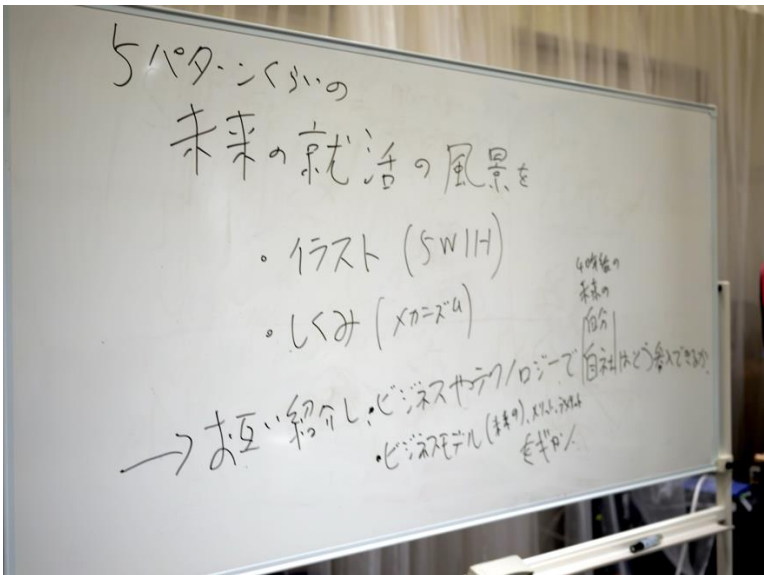 5パターンくらいの
未来の就活の風景を
・イラスト (5W1H)
・しくみ (メカニズム)
40年後の
未来の
自分
自社はどう参入できるか
→お互い紹介し、・ビジネスやテクノロジーで
・ビジネスモデル(未来の)、メリット、デメリット
をギロン